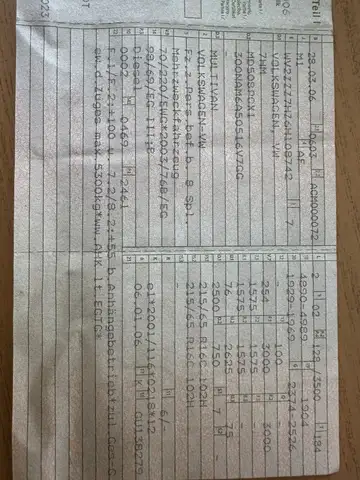 Teil I
28.03.06 0603 ACM000072
M1 AF
WV2ZZZ7HZ6H108742 7
VOLKSWAGEN, VW
7HM
MD508PCX1
VOONAM6A50516V7GG
MULTIVAN
VOLKSWAGEN-VW
Fz.z.Pers.bef.b. 8 Spl.
Mehrzweckfahrzeug
70/220/EWG*2003/76B/EG
98/69/EG III;B
Diesel
0002 0469 2461
F.1/F.2:+100 u. 7.2/8.2:+55 b. Anhängebetrieb*zul.Ges.G
ew.d.Zuges max.5300kg*ww.AHK lt.EGTG*
2 02 128 /3500 184
4890-4989 1904
1939-1969 2374-2526
- 100 -
254 3000 3000
1575 1575 -
1575 1575 -
76 2625 75
2500 750 7 -
215/65 R16C 102H
215/65 R16C 102H
-
6/-
e1*2001/116*0218*12
06.01.06 K